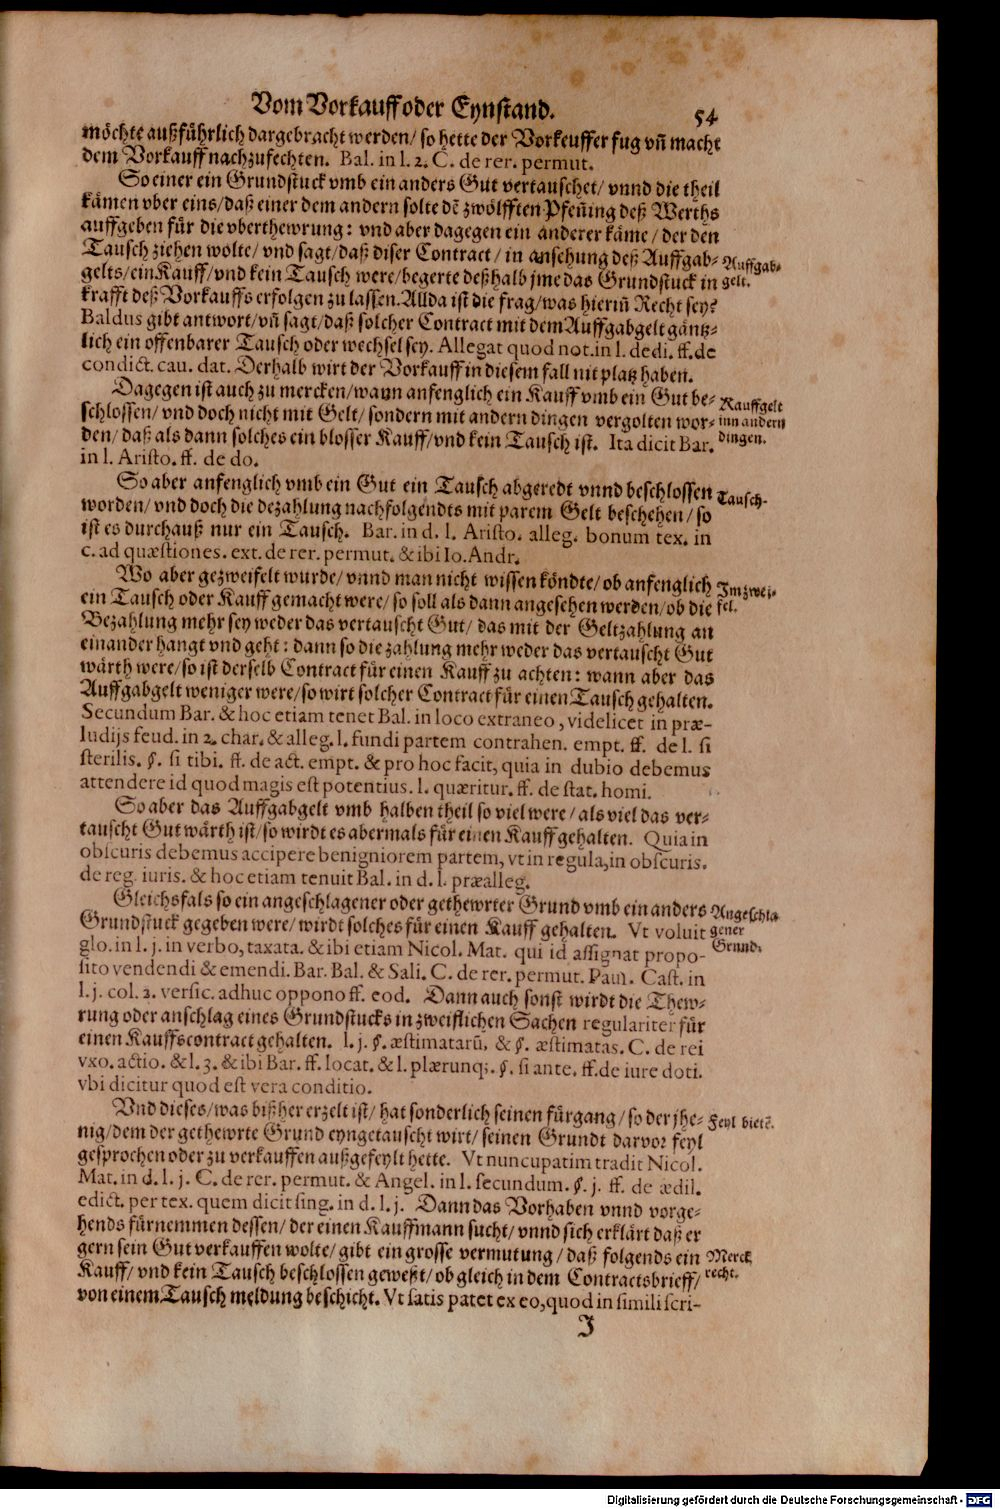 Vom Vorkauff oder Eynstand.
54
möchte außführlich dargebracht werden/ so hette der Vorkeuffer fug vñ macht
dem Vorkauff nachzufechten. Bal. in l. 2. C. de rer. permut.
So einer ein Grundstuck vmb ein anders Gut vertauschet/ vnnd die theil
kämen vber eins/ daß einer dem andern solte dē zwölfften Pfeñing deß Werths
auffgeben für die vberthewrung: vnd aber dagegen ein anderer käme/ der den
Tausch ziehen wolte/ vnd sagt/ daß diser Contract/ in ansehung deß Auffgab-
gelts/ ein Kauff/ vnd kein Tausch were/ begerte deßhalb jme das Grundstuck in
krafft deß Vorkauffs erfolgen zu lassen. Allda ist die frag/ was hieriñ Recht sey?
Baldus gibt antwort/ vñ sagt/ daß solcher Contract mit dem Auffgabgelt gäntz-
lich ein offenbarer Tausch oder wechsel sey. Allegat quod not. in l. dedi. ff. de
condict. cau. dat. Derhalb wirt der Vorkauff in diesem fall nit platz haben.
Auffgab-
gelt.
Dagegen ist auch zu mercken/ wann anfenglich ein Kauff vmb ein Gut be-
schlossen/ vnd doch nicht mit Gelt/ sondern mit andern dingen vergolten wor-
den/ daß als dann solches ein blosser Kauff/ vnd kein Tausch ist. Ita dicit Bar.
in l. Aristo. ff. de do.
Kauffgelt
inn andern
dingen.
So aber anfenglich vmb ein Gut ein Tausch abgeredt vnnd beschlossen
worden/ vnd doch die bezahlung nachfolgendts mit parem Gelt beschehen/ so
ist es durchauß nur ein Tausch. Bar. in d. l. Aristo. alleg. bonum tex. in
c. ad quæstiones. ext. de rer. permut. & ibi Io. Andr.
Tausch.
Wo aber gezweifelt wurde/ vnnd man nicht wissen köndte/ ob anfenglich
ein Tausch oder Kauff gemacht were/ so soll als dann angesehen werden/ ob die
Bezahlung mehr sey weder das vertauscht Gut/ das mit der Geltzahlung an
einander hangt vnd geht: dann so die zahlung mehr weder das vertauscht Gut
wärth were/ so ist derselb Contract für einen Kauff zu achten: wann aber das
Auffgabgelt weniger were/ so wirt solcher Contract für einen Tausch gehalten.
Secundum Bar. & hoc etiam tenet Bal. in loco extraneo, videlicet in præ-
ludijs feud. in 2. char. & alleg. l. fundi partem contrahen. empt. ff. de l. si
sterilis. §. si tibi. ff. de act. empt. & pro hoc facit, quia in dubio debemus
attendere id quod magis est potentius. l. quæritur. ff. de stat. homi.
Im zwei-
fel.
So aber das Auffgabgelt vmb halben theil so viel were/ als viel das ver-
tauscht Gut wärth ist/ so wirdt es abermals für einen Kauff gehalten. Quia in
obscuris debemus accipere benigniorem partem, vt in regula, in obscuris.
de reg. iuris. & hoc etiam tenuit Bal. in d. l. præalleg.
Gleichsfals so ein angeschlagener oder gethewrter Grund vmb ein anders
Grundstuck gegeben were/ wirdt solches für einen Kauff gehalten. Vt voluit
glo. in l. j. in verbo, taxata. & ibi etiam Nicol. Mat. qui id assignat propo-
sito vendendi & emendi. Bar. Bal. & Sali. C. de rer. permut. Paul. Cast. in
l. j. col. 2. versic. adhuc oppono ff. eod. Dann auch sonst wirdt die Thew-
rung oder anschlag eines Grundstucks in zweiflichen Sachen regulariter für
einen Kauffscontract gehalten. l. j. §. æstimatarū, & §. æstimatas. C. de rei
vxo. actio. & l. 3. & ibi Bar. ff. locat. & l. plærunq;. §. si ante. ff. de iure doti.
vbi dicitur quod est vera conditio.
Angeschla
gener
Grund.
Vnd dieses/ was bißher erzelt ist/ hat sonderlich seinen fürgang/ so der jhe-
nig/ dem der gethewrte Grund eyngetauscht wirt/ seinen Grundt darvor feyl
gesprochen oder zu verkauffen außgefeylt hette. Vt nuncupatim tradit Nicol.
Mat. in d. l. j. C. de rer. permut. & Angel. in l. secundum. §. j. ff. de ædil.
edict. per tex. quem dicit sing. in d. l. j. Dann das Vorhaben vnnd vorge-
hends fürnemmen dessen/ der einen Kauffmann sucht/ vnnd sich erklärt daß er
gern sein Gut verkauffen wolte/ gibt ein grosse vermutung/ daß folgends ein
Kauff/ vnd kein Tausch beschlossen gewest/ ob gleich in dem Contractsbrieff/
von einem Tausch meldung beschicht. Vt satis patet ex eo, quod in simili scri-
Feyl bietē.
Merck
recht.
J
Digitalisierung gefördert durch die Deutsche Forschungsgemeinschaft - DFG